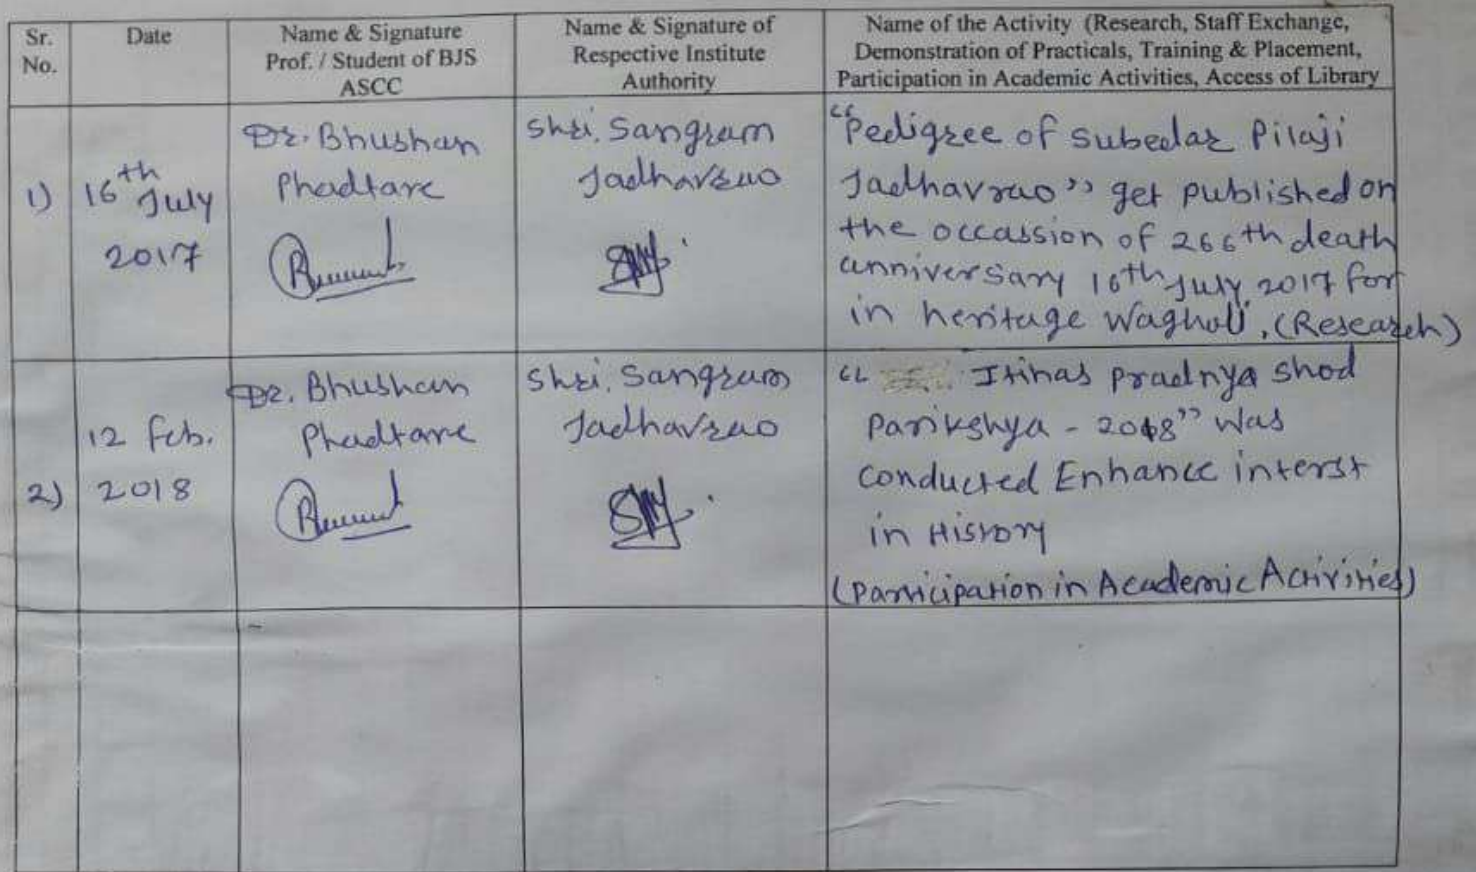 Sr. No.
Date
Name & Signature
Prof. / Student of BJS
ASCC
Name & Signature of
Respective Institute
Authority
Name of the Activity (Research, Staff Exchange,
Demonstration of Practicals, Training & Placement,
Participation in Academic Activities, Access of Library
1)
16th July
2017
Dr. Bhushan
Phadtare
Shri. Sangram
Jadhavrao
"Pedigree of Subedar Pilaji
Jadhavrao" get published on
the occassion of 266th death
anniversary 16th July 2017 for
in heritage Wagholi. (Research)
2)
12 Feb.
2018
Dr. Bhushan
Phadtare
Shri. Sangram
Jadhavrao
" Itihas Pradnya Shod
Parikshya - 2018" was
conducted Enhance interst
in History
(Participation in Academic Activities)